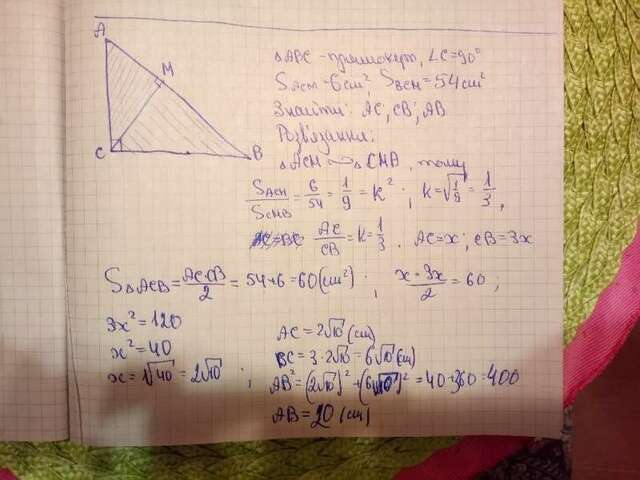 A
M
C
B
△ABC - прямокут, ∠C=90°
S ACM = 6cm², S BCM = 54cm²
Знайти: AC, CB, AB
Розв'язання:
△ACM ~ △CMB, тому
S ACM / S CMB = 6/54 = 1/9 = K²; K = √1/9 = 1/3,
AC/CB = K = 1/3. AC=x; CB=3x
S△ACB = AC·CB/2 = 54+6 = 60(cm²); x·3x/2 = 60;
3x² = 120
x² = 40
x = √40 = 2√10;
AC = 2√10 (cm)
BC = 3·2√10 = 6√10 (cm)
AB² = (2√10)² + (6√10)² = 40+360=400
AB = 20 (cm)